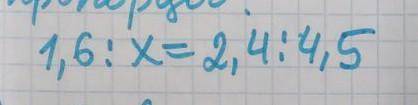 1,6 : x = 2,4 : 4,5